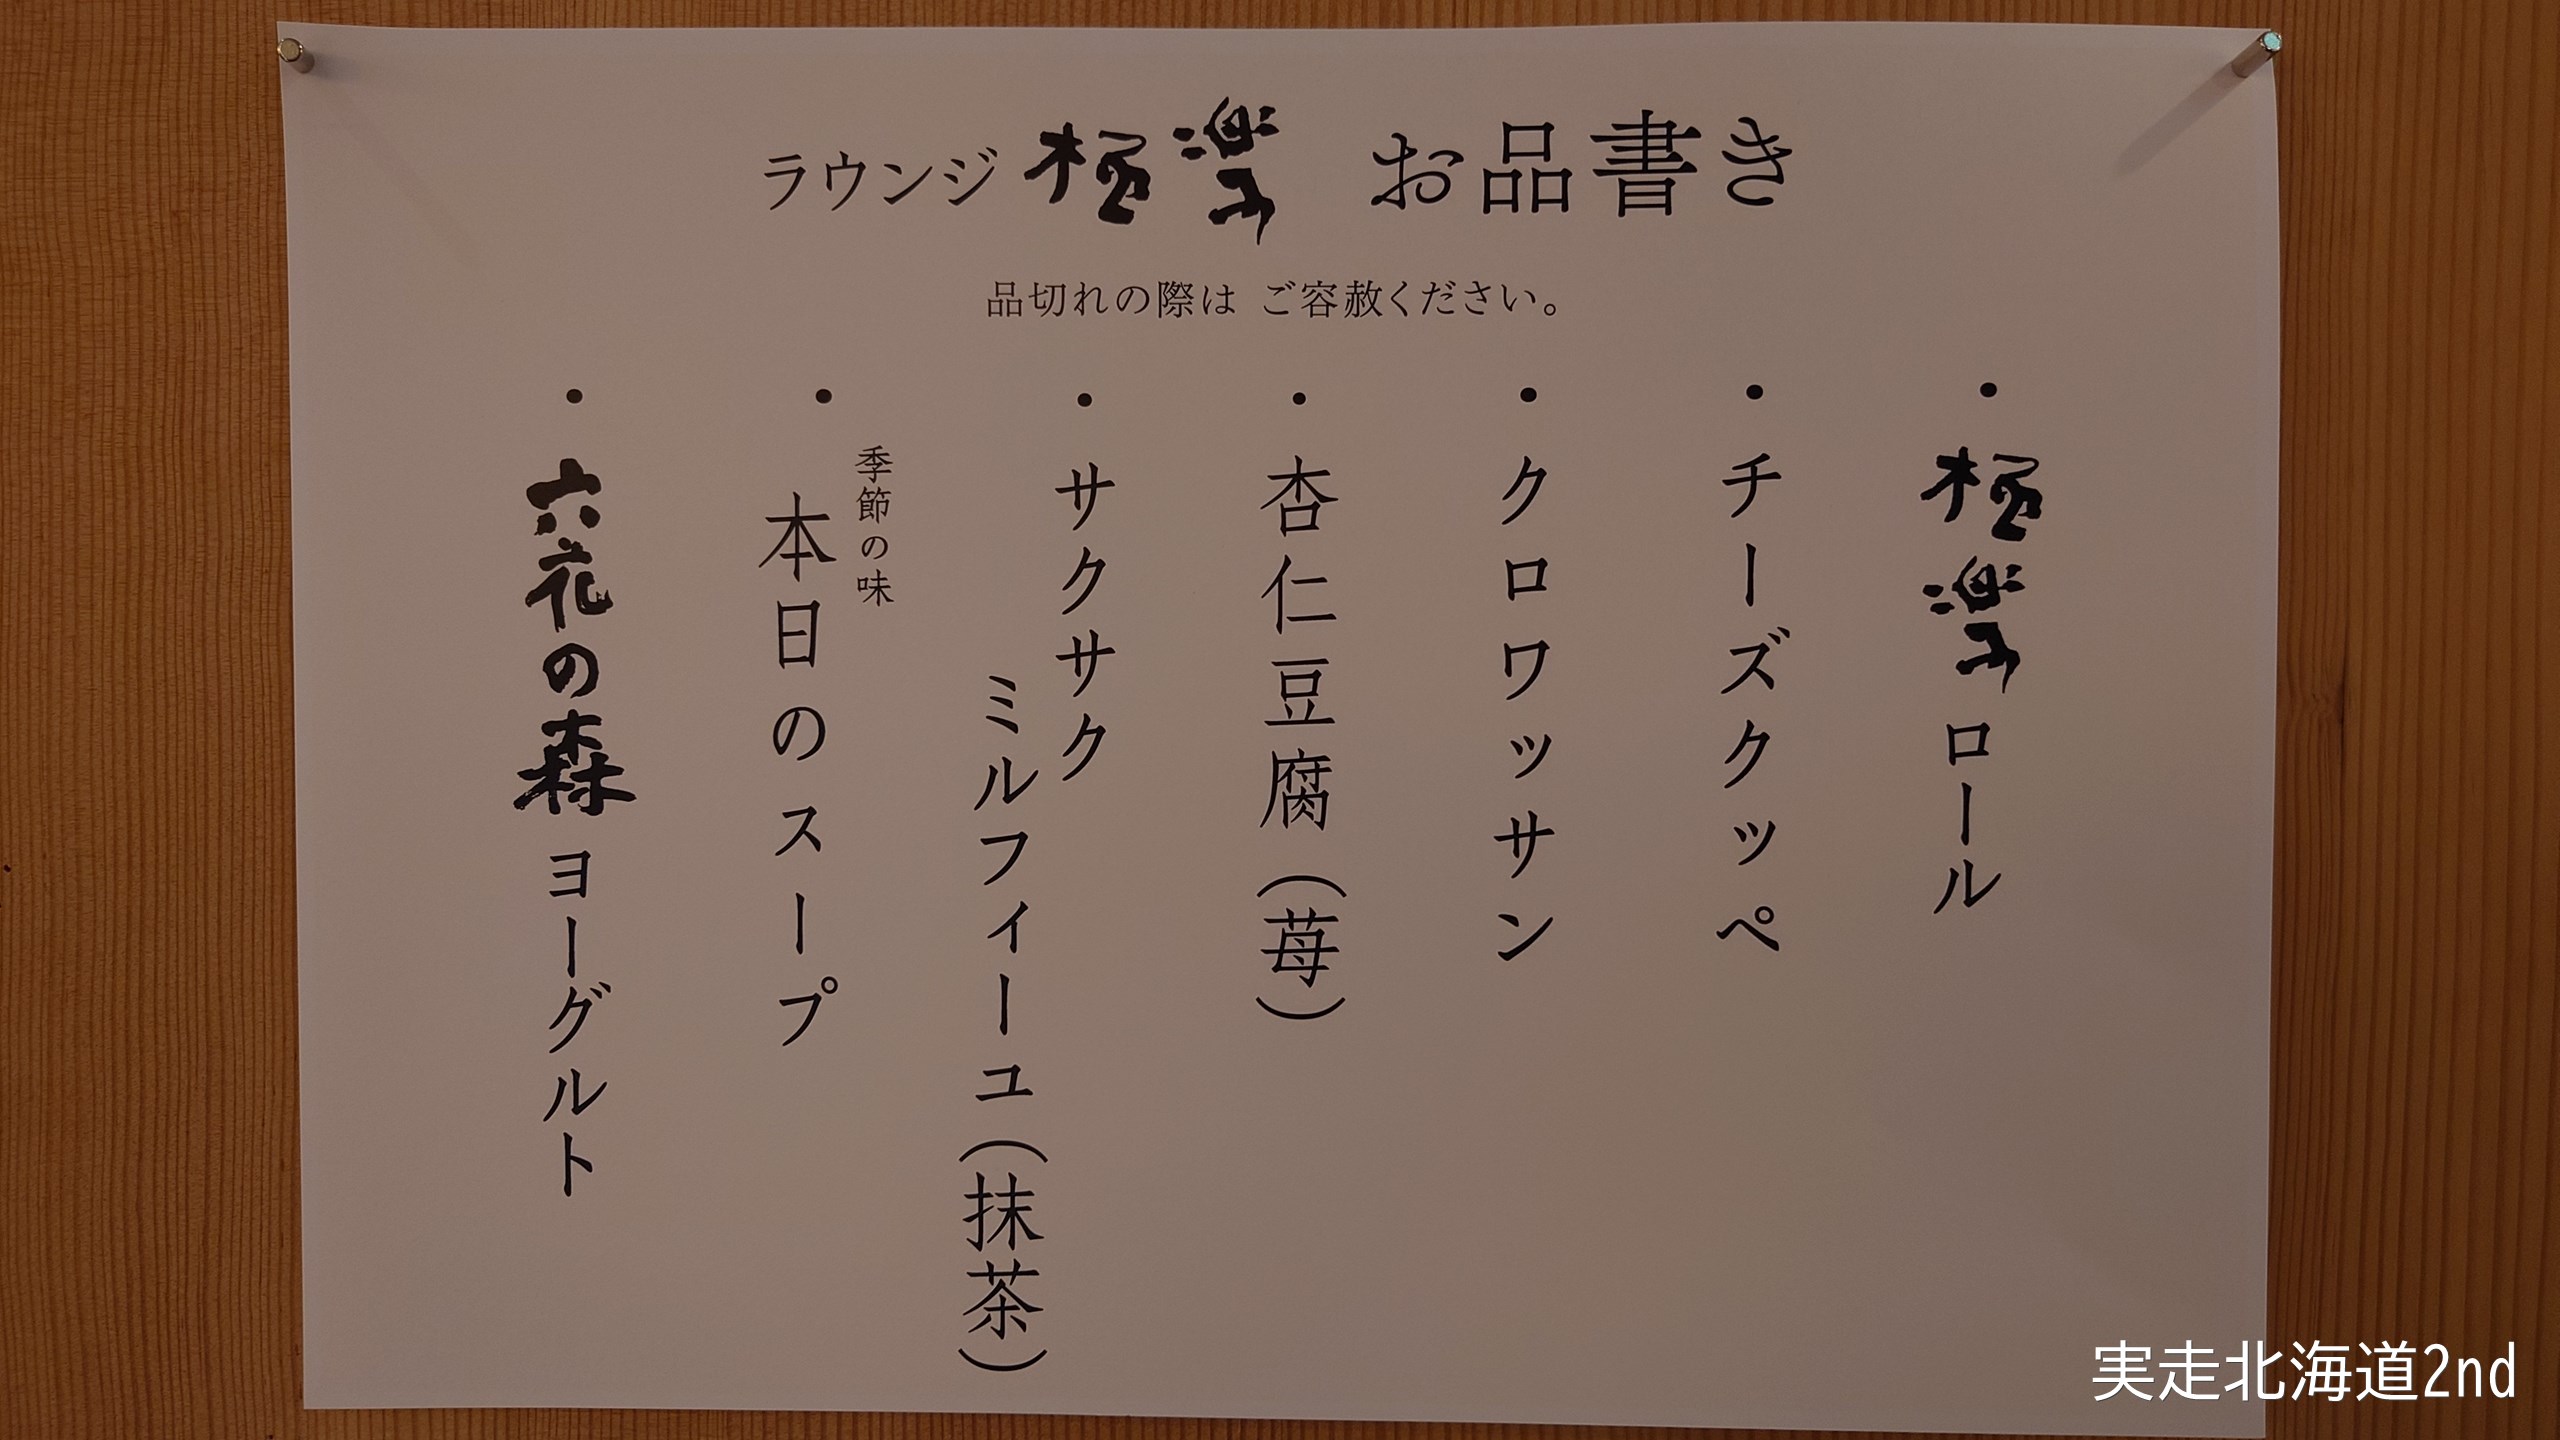 ラウンジ 極楽 お品書き
品切れの際は ご容赦ください。
・極楽ロール
・チーズクッペ
・クロワッサン
・杏仁豆腐（苺）
・サクサク
ミルフィーユ（抹茶）
季節の味
・本日のスープ
・六花の森ヨーグルト
実走北海道2nd